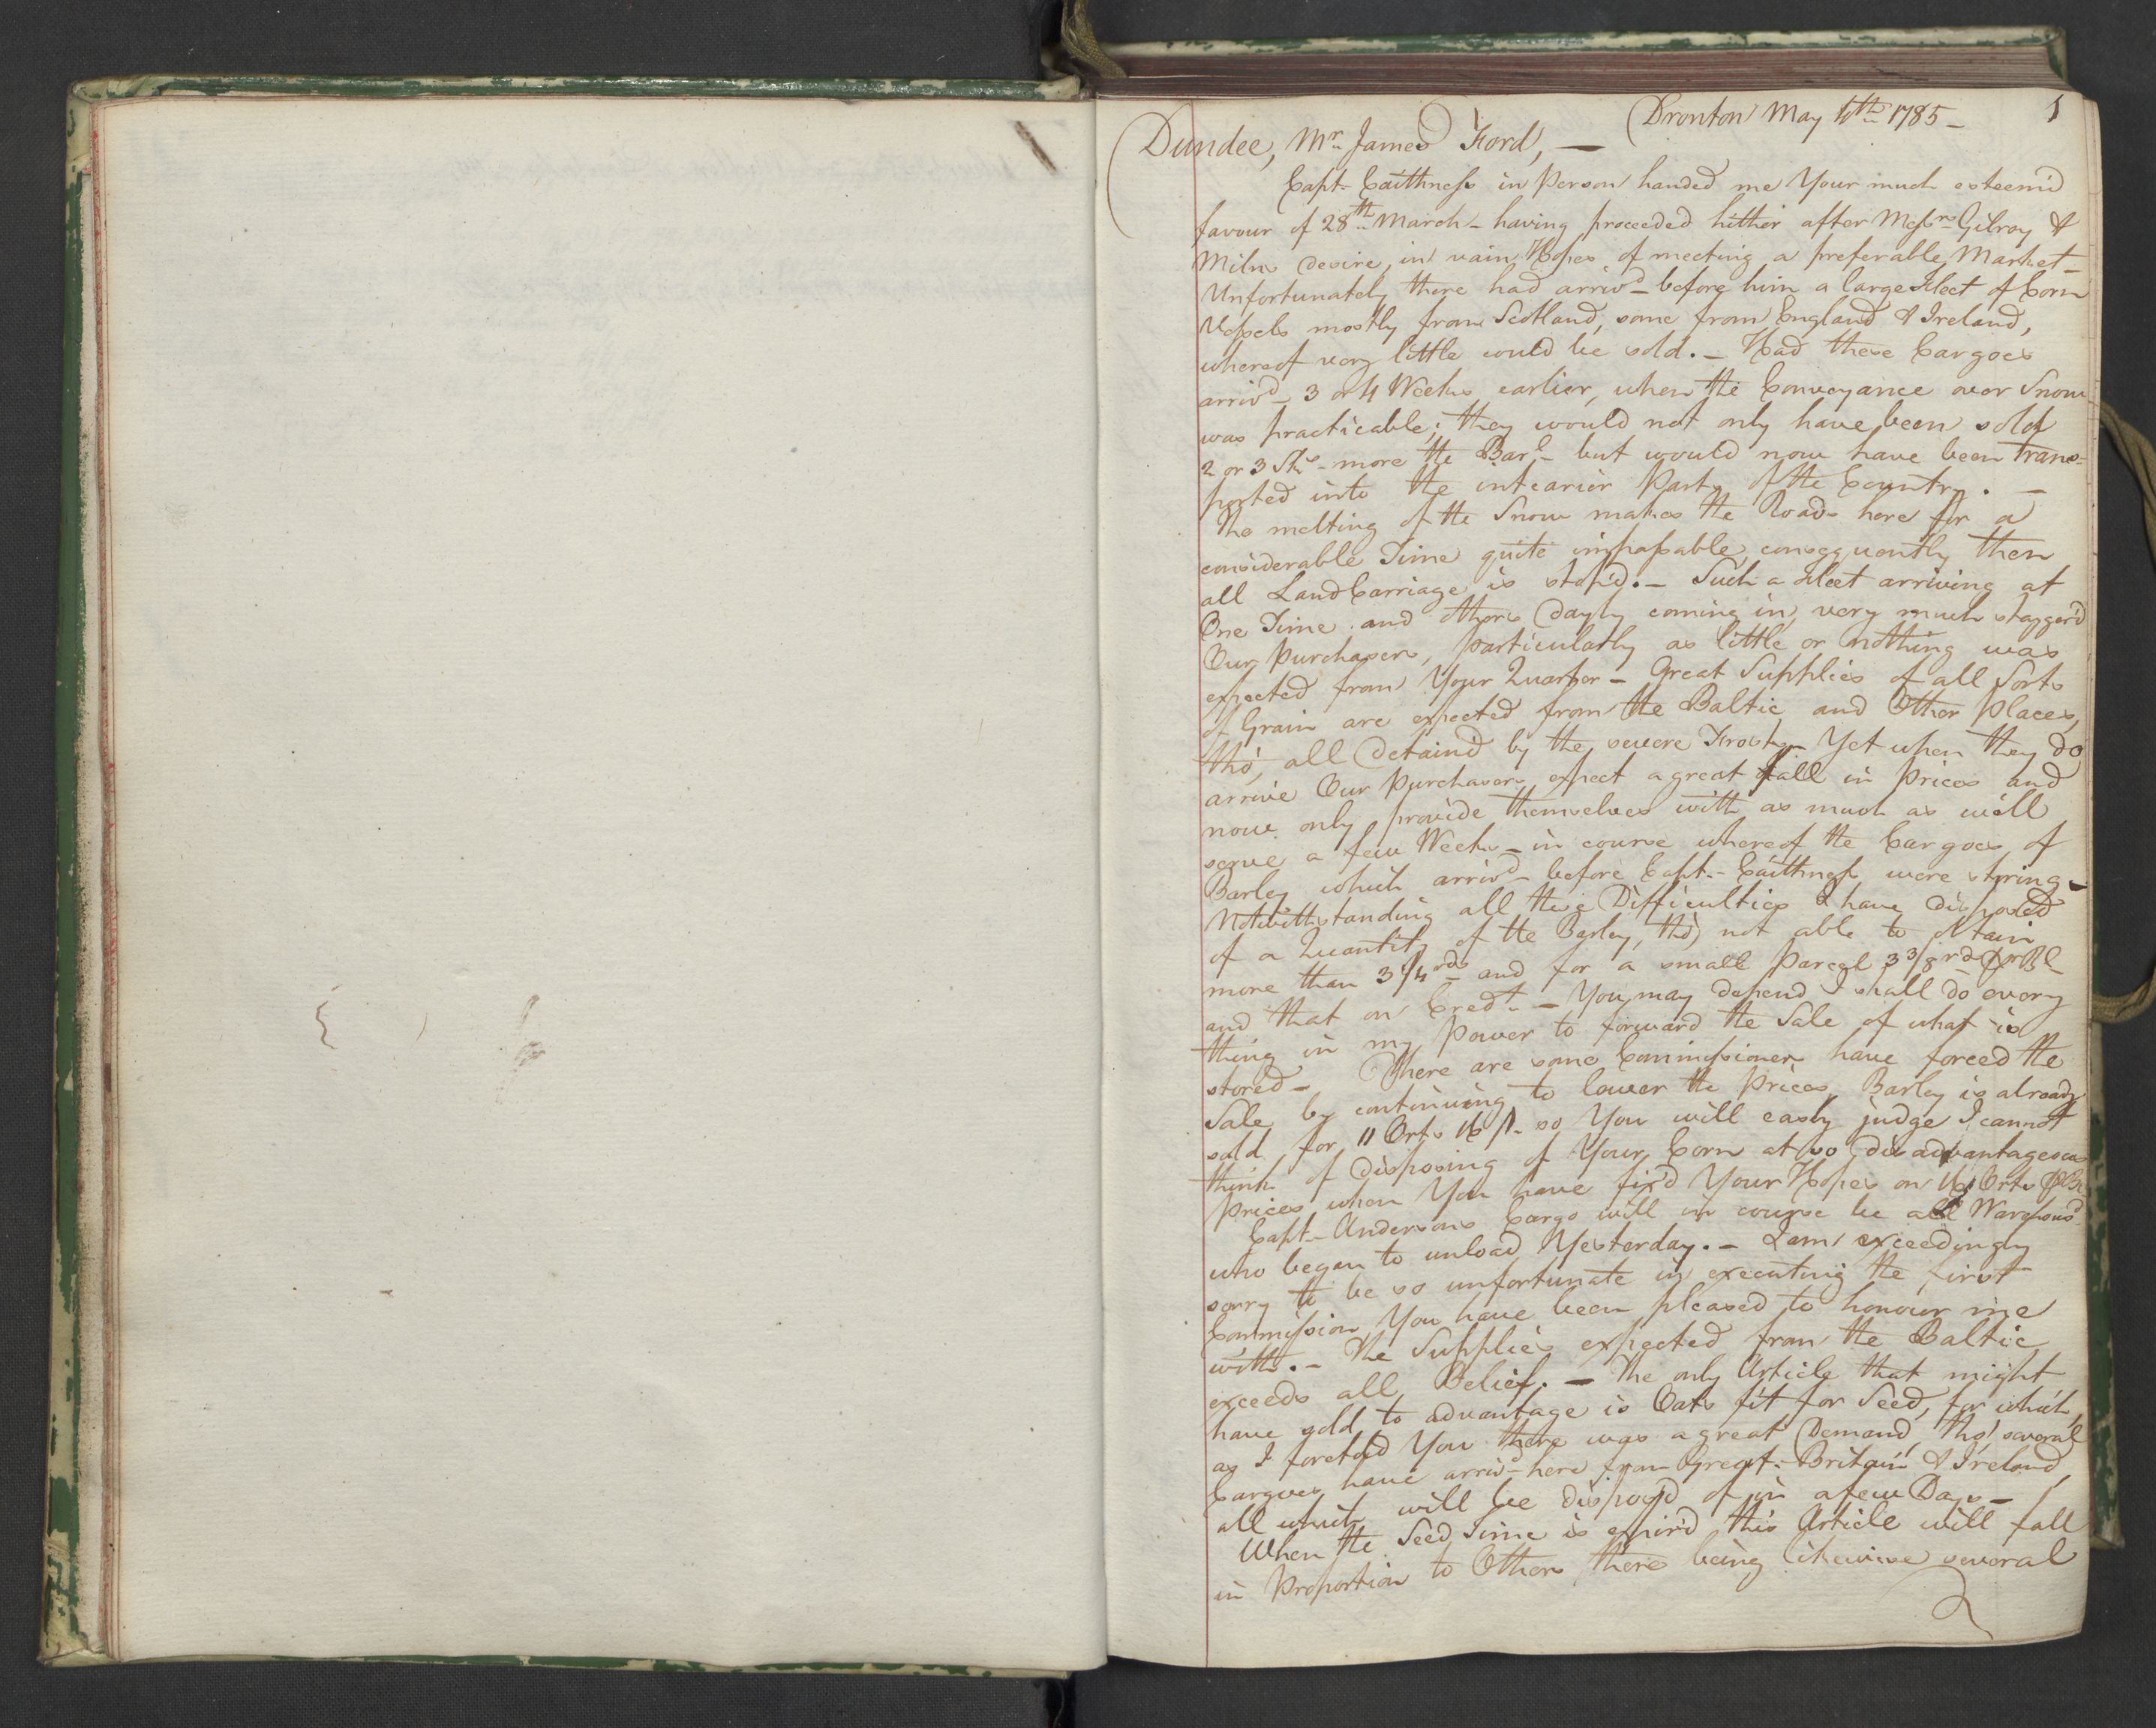 1
Dronton May 10th 1785 –
Dundee, Mr. James Ford, —
Capt. Caithness in Person handed me Your much esteem'd
favour of 28th March – having proceeded hither after Messrs Gilroy &
Milns desire, in vain Hopes of meeting a preferable Market –
Unfortunately there had arriv'd before him a large Fleet of Corn
Vessels mostly from Scotland, some from England & Ireland,
whereof very little could be sold. – Had these Cargoes
arriv'd 3 or 4 Weeks earlier, when the Conveyance over Snow
was practicable, they would not only have been sold
2 or 3 Sh's more the Barl – but would now have been trans-
ported into the intearior Parts of the Country. –
The melting of the Snow makes the Roads here for a
considerable Time quite impassable, consequently then
all Land Carriage is stop'd. – Such a Fleet arriving at
One Time and others dayly coming in, very much stagger'd
Our Purchasers, particularly as little or nothing was
expected from Your Quarter – Great Supplies of all Sorts
of Grain are expected from the Baltic and Other Places,
tho' all detain'd by the severe Frosts – Yet when they do
arrive Our Purchasers expect a great fall in Prices and
now only provide themselves with as much as will
serve a few Weeks – in course whereof the Cargoes of
Barley which arriv'd before Capt. Caithness were storing –
Notwithstanding all these Difficulties I have disposed
of a Quantity of the Barley, tho' not able to obtain
more than 3 1/4 rds and for a small Parcel 3 3/8 rds pr Bl
and that on Credt. – You may depend I shall do every
thing in my Power to forward the Sale of what is
stored – There are some Commissioners have forced the
Sale by continuing to lower the Prices, Barley is already
sold for 11 Orts 16 / – so You will easly judge I cannot
think of disposing of Your Corn at so disadvantageous
Prices when You have fix'd Your Hopes on 16 Orts pBl
Capt. Andersons Cargo will in course be all Warehous'd
who began to unload Yesterday. – I am exceedingly
sorry to be so unfortunate in executing the first
Commission You have been pleased to honour me
with. – The Supplies expected from the Baltic
exceeds all Belief. – The only Article that might
have sold to advantage is Oats fit for Seed, for which,
as I foretold You there was a great Demand, tho' several
Cargoes have arriv'd here from Great-Britain & Ireland,
all which will be dispos'd of in a few Days –
When the Seed Time is expir'd this Article will fall
in Proportion to Others there being likewise several